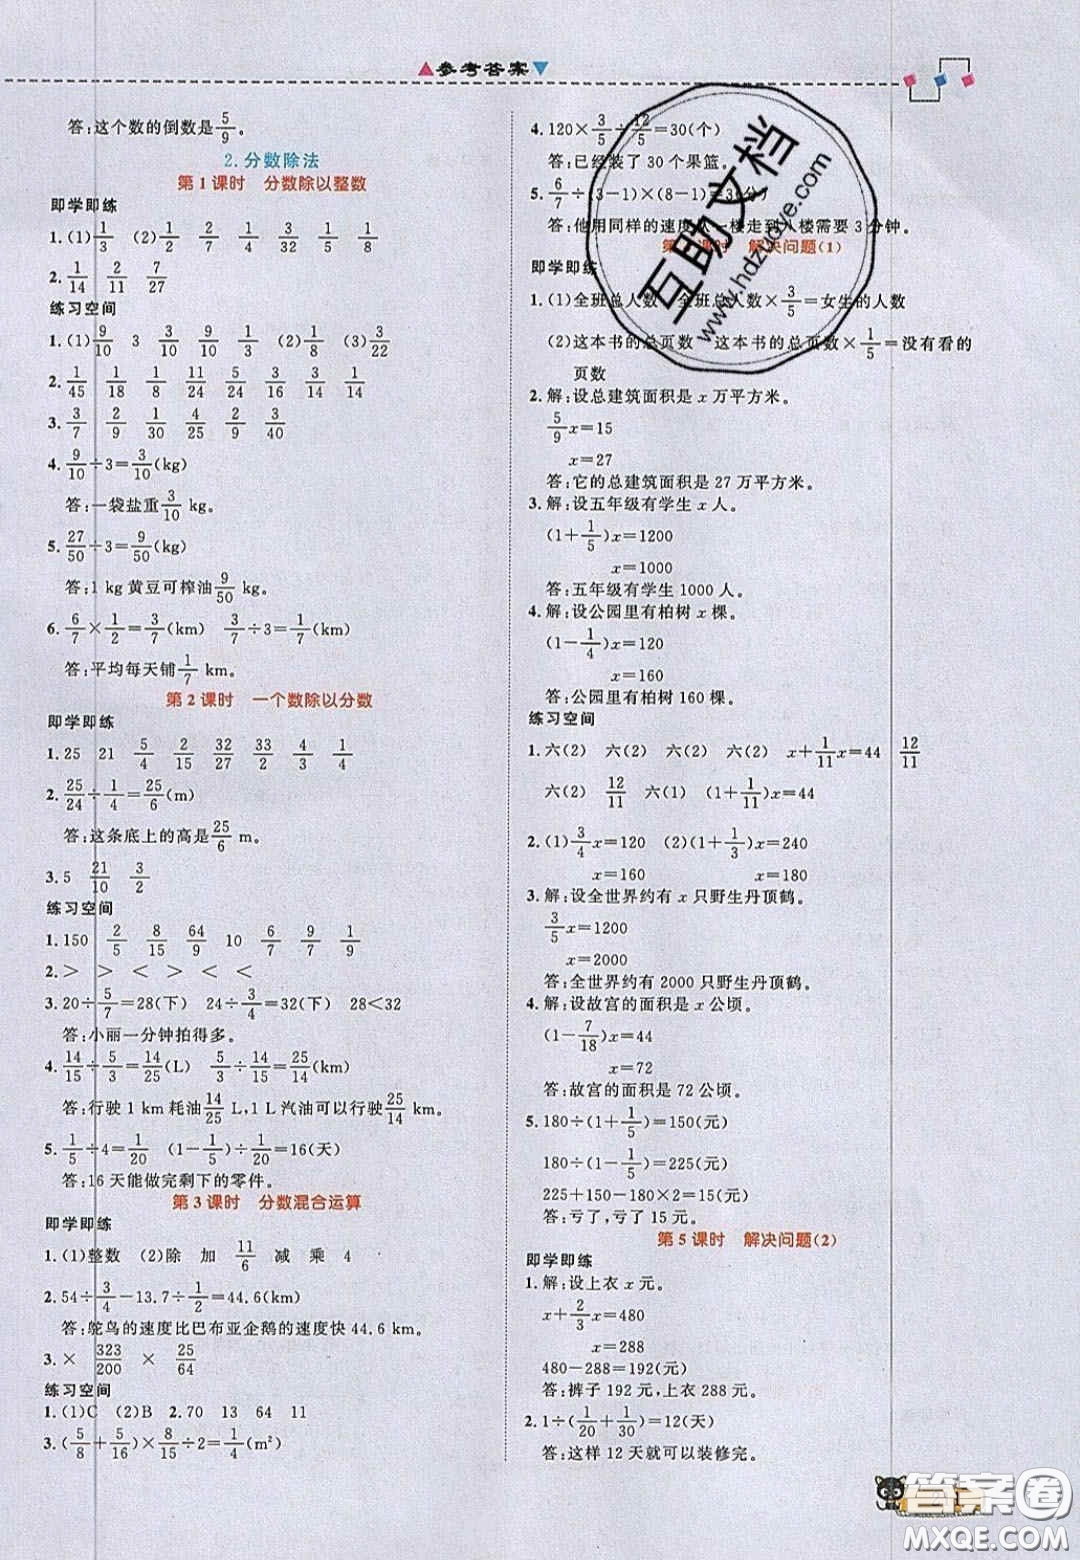 参考答案
答:这个数的倒数是5/9。
2.分数除法
第1课时 分数除以整数
即学即练
1.(1)1/3 (2)1/2 2/7 1/4 3/32 1/5 1/8
2.1/14 2/11 7/27
练习空间
1.(1)9/10 3 3/10 9/10 1/3 3/10 (2)1/8 (3)3/22
2.1/45 1/18 1/8 11/24 5/24 4/21 3/14
3.3/7 2/9 1/30 4/25 1/14 9/20 2/9
4.9/10÷3=3/10(kg)
答:一袋盐重3/10 kg。
5.27/50÷3=9/50(kg)
答:1 kg黄豆可榨油9/50 kg。
6.6/7×1/2=3/7(km) 3/7÷3=1/7(km)
答:平均每天铺1/7 km。
第2课时 一个数除以分数
即学即练
1.25 21 5/4 2/15 32/27 33/2 4/3 1/4
2.25/24÷1/4=25/6(m)
答:这条底上的高是25/6 m。
3.5 21/10 3/2
练习空间
1.150 2/5 8/15 64/9 10 6/7 9/7 1/9
2.> > < < > <
3.20÷5/7=28(下) 24÷3/4=32(下) 28<32
答:小丽一分钟拍得多。
4.14/15÷5/3=14/25(L) 5/3÷14/15=25/14(km)
答:行驶1 km耗油14/25 L,1 L汽油可以行驶25/14 km。
5.1/5÷4=1/20 (1-1/5)÷1/20=16(天)
答:16天能做完剩下的零件。
第3课时 分数混合运算
即学即练
1.(1)整数 (2)除 加 11/6 减 乘 4
2.54÷3/4-13.7÷1/2=44.6(km)
答:鸵鸟的速度比巴布亚企鹅的速度快44.6 km。
3.× 323/200 × 25/64
练习空间
1.(1)C (2)B 2.70 13 64 11
3.(5/8+5/16)×8/15÷2=1/4(m²)
4.120×3/5÷12/5=30(个)
答:已经装了30个果篮。
5.6/7÷(3-1)×(8-1)=3(分)
答:他用同样的速度从一楼走到八楼需要3分钟。
第 课时 解决问题(1)
即学即练
1.(1)全班总人数 全班总人数×3/5=女生的人数
(2)这本书的总页数 这本书的总页数×1/5=没有看的
页数
2.解:设总建筑面积是x万平方米。
5/9x=15
x=27
答:它的总建筑面积是27万平方米。
3.解:设五年级有学生x人。
(1+1/5)x=1200
x=1000
答:五年级有学生1000人。
4.解:设公园里有柏树x棵。
(1-1/4)x=120
x=160
答:公园里有柏树160棵。
练习空间
1.六(2) 六(2) 六(2) 六(2) x+1/11x=44 12/11
六(2) 12/11 六(1) (1+1/11)x=44
2.(1)3/4x=120 (2)(1+1/3)x=240
x=160 x=180
3.解:设全世界约有x只野生丹顶鹤。
3/5x=1200
x=2000
答:全世界约有2000只野生丹顶鹤。
4.解:设故宫的面积是x公顷。
(1-7/18)x=44
x=72
答:故宫的面积是72公顷。
5.180÷(1+1/5)=150(元)
180÷(1-1/5)=225(元)
225+150-180×2=15(元)
答:亏了,亏了15元。
第5课时 解决问题(2)
即学即练
1.解:设上衣x元。
x+2/3x=480
x=288
480-288=192(元)
答:裤子192元,上衣288元。
2.1÷(1/20+1/30)=12(天)
答:这样12天就可以装修完。
互助文档
www.hdzuoye.com
答案圈
MXQE.COM